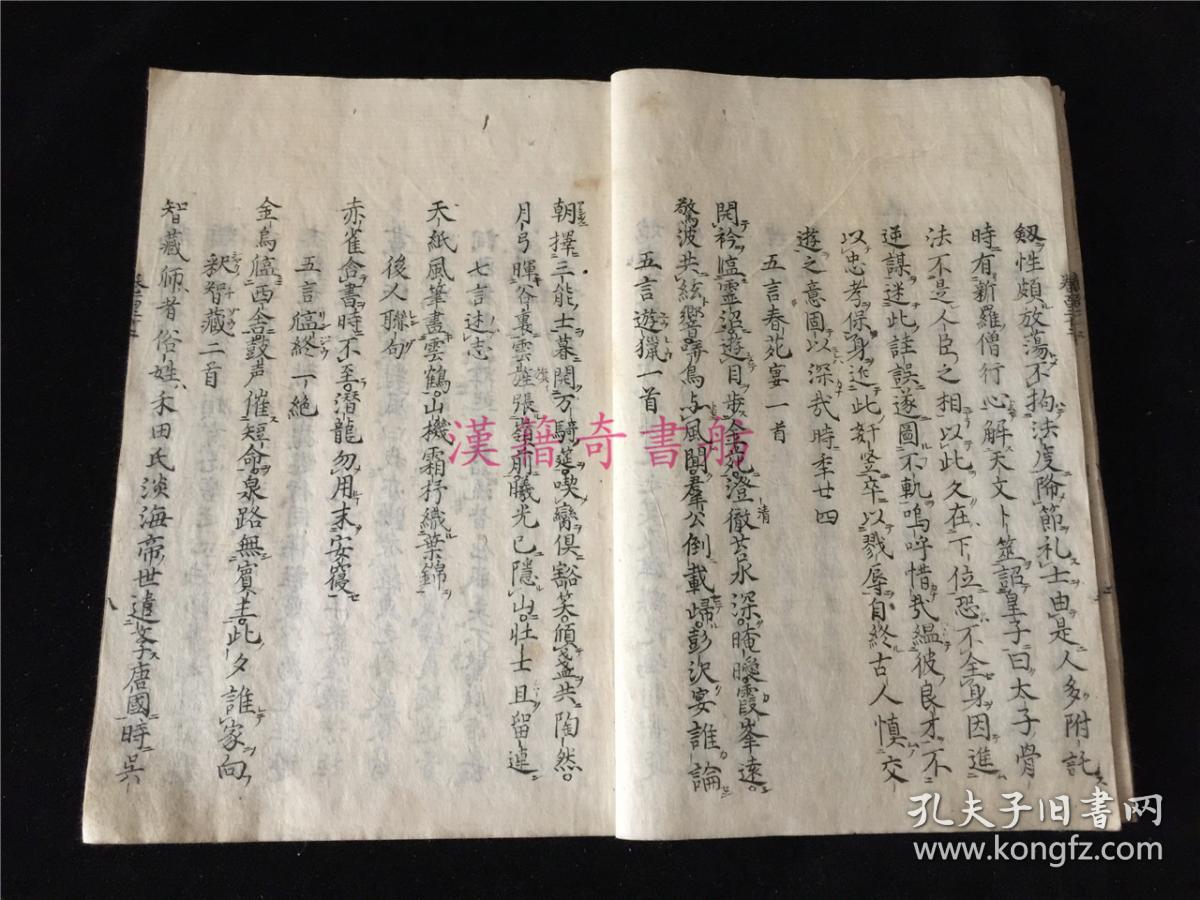 剱性頗放蕩不拘法度降節礼士由是人多附託
時有新羅僧行心解天文卜筮詔皇子曰太子骨
法不是人臣之相以此久在下位恐不全身因進
逆謀迷此詿誤遂圖不軌嗚呼惜哉縕彼良才不
以忠孝保身近此奸竪卒以戮辱自終古人慎交
遊之意固以深哉時年廿四
五言春苑宴一首
開衿臨霊沼遊目歩金苑澄徹苔水深晻曖霞峯遠
清
驚波共絃響哢鳥与風聞羣公倒載歸彭沢宴誰論
五言遊獵一首
朝擇三能士暮開万騎筵喫臠俱豁矣傾盞共陶然
月弓暉谷裏雲旌張嶺前曦光已隠山壮士且留連
七言述志
天紙風筆畫雲鶴山機霜杼織葉錦
後人聯句
赤雀含書時不至潜龍勿用未安寝
五言臨終一絶
金烏臨西舎鼓声催短命泉路無賓主此夕誰家向
釈智蔵二首
智蔵師者俗姓禾田氏淡海帝世遣学唐國時呉
漢籍奇書舫
孔夫子旧书网
www.kongfz.com